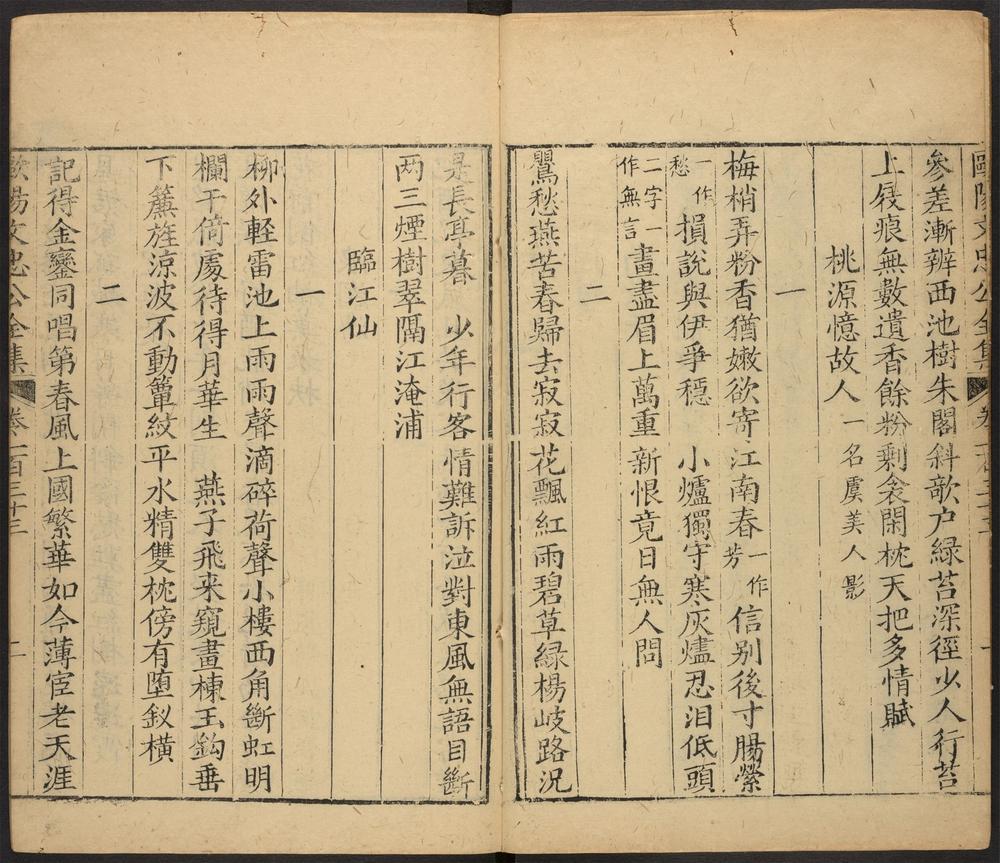 歐陽文忠公全集 卷一百三十三 一
參差漸辨西池樹朱閣斜欹户緑苔深徑少人行苔
上屐痕無數遺香餘粉剩衾閑枕天把多情賦
桃源憶故人 一名虞美人影
一
梅梢弄粉香猶嫩欲寄江南春一作芳信别後寸腸縈
一作愁損說與伊爭穩 小爐獨守寒灰燼忍泪低頭
二字一作無言畫盡眉上萬重新恨竟日無人問
二
鸎愁燕苦春歸去寂寂花飄紅雨碧草緑楊岐路況
是長亭暮 少年行客情難訴泣對東風無語目斷
两三煙樹翠隔江淹浦
臨江仙
一
柳外輕雷池上雨雨聲滴碎荷聲小樓西角斷虹明
欄干倚處待得月華生 燕子飛来窺畫棟玉鈎垂
下簾旌涼波不動簟紋平水精雙枕傍有堕釵橫
二
記得金鑾同唱第春風上國繁華如今薄宦老天涯
歐陽文忠公全集 卷一百三十三 二